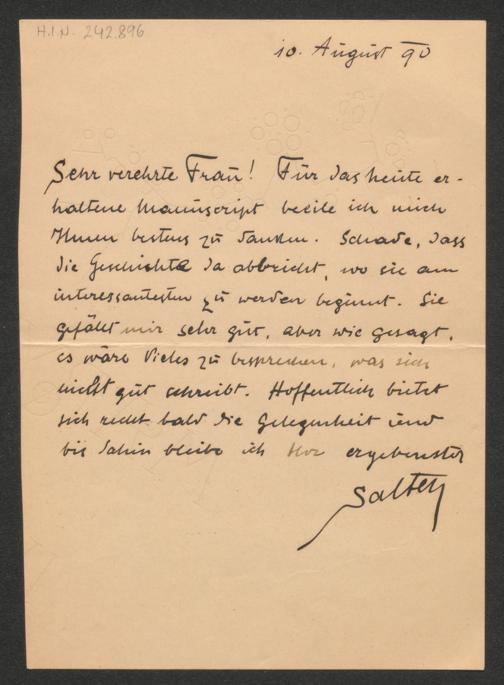 H.I.N. 242.896
10. August 90
Sehr verehrte Frau! Für das heute er-
haltene Manuscript beeile ich mich
Ihnen bestens zu danken. Schade, dass
die Geschichte da abbricht, wo sie am
interessantesten zu werden beginnt. Sie
gefällt mir sehr gut, aber wie gesagt,
es wäre Vieles zu besprechen, was sich
nicht gut schreibt. Hoffentlich bietet
sich recht bald die Gelegenheit und
bis dahin bleibe ich Ihr ergebenster
Salten